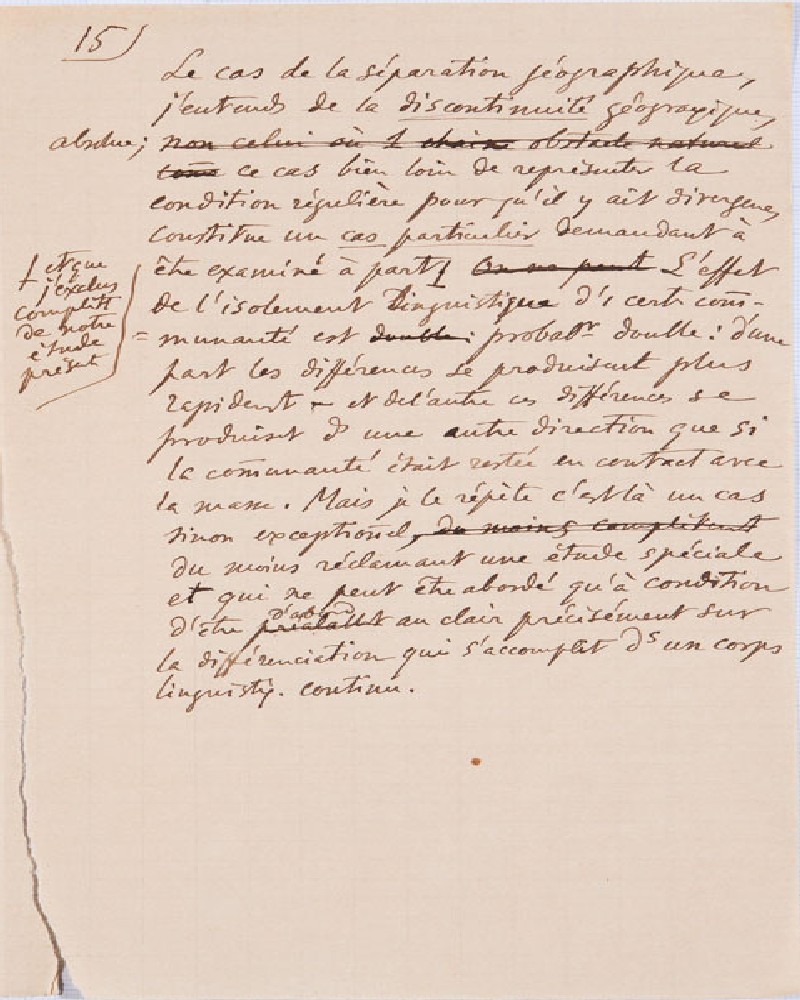 15)
Le cas de la séparation géographique,
j'entends de la discontinuité géograpique,
absolue; non celui où 1 chaine obstacle naturel
come ce cas bien loin de représenter la
condition régulière pour qu'il y ait divergence,
constitue un cas particulier demandant à
être examiné à part On ne peut L'effet
et que
j'exclus
complètt
de notre
étude
présent
de l'isolement linguistique d'1 certe com-
= munauté est double : probabt double : d'une
part les différences se produisent plus
rapidemt – et de l'autre ces différences se
produisent ds une autre direction que si
la communauté était restée en contact avec
la masse. Mais je le répète c'est là un cas
sinon exceptionel, du moins complètemt
du moins réclamant une étude spéciale
et qui ne peut être abordé qu'à condition
d'abord
d'être préalablt au clair précisément sur
la différenciation qui s'accomplit ds un corps
linguistiq. continu.